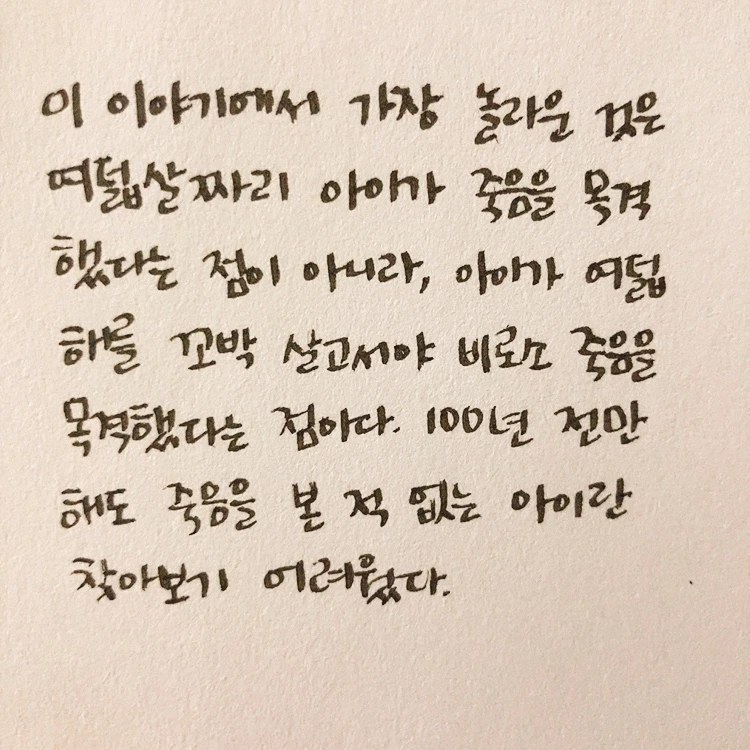 이 이야기에서 가장 놀라운 것은
여덟살짜리 아이가 죽음을 목격
했다는 점이 아니라, 아이가 여덟
해를 꼬박 살고서야 비로소 죽음을
목격했다는 점이다. 100년 전만
해도 죽음을 본 적 없는 아이란
찾아보기 어려웠다.